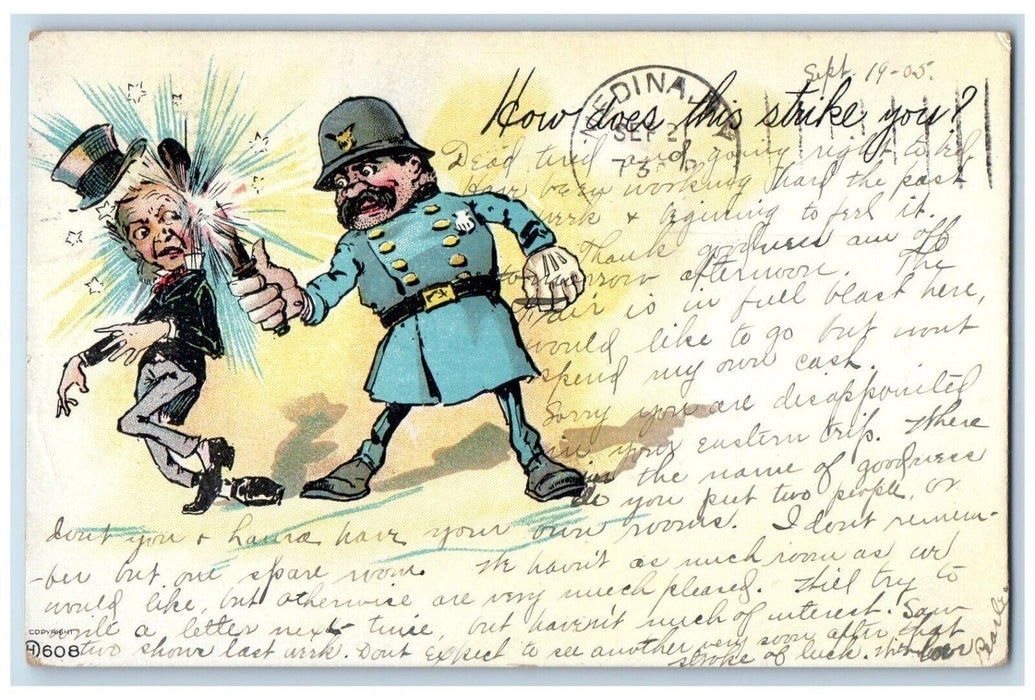 Sept. 19-05.
How does this strike you?
MEDINA, N.Y.
SEP 2
Dead tired and going right to bed
Have been working hard the past
week + beginning to feel it.
Thank goodness am off
tomorrow afternoon. The
Fair is in full blast here,
would like to go but wont
spend my own cash.
Sorry you are disappointed
in your eastern trip. Where
in the name of goodness
do you put two people, or
dont you + Laura have your own rooms. I dont remem-
-ber but one spare room. We havn't as much room as we
would like, but otherwise are very much pleased. Will try to
write a letter next time, but haven't much of interest. Saw
two shows last week. Dont expect to see another very soon after that
stroke of luck. With love
COPYRIGHT
608